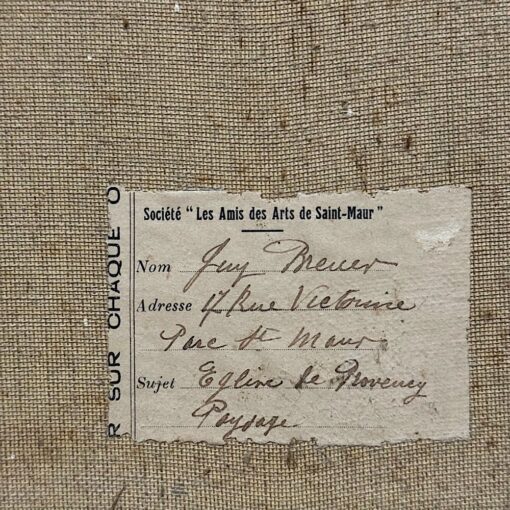 Société " Les Amis des Arts de Saint-Maur "
Nom Guy Brever
Adresse 17 Rue Victorine
Parc St Maur
Sujet Eglise de Provency
Paysage
R SUR CHAQUE O